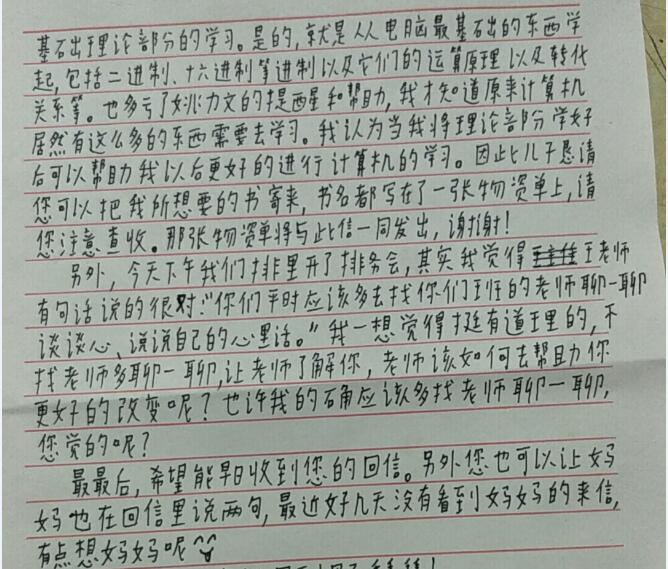 基石出理论部分的学习。是的，就是从电脑最基石出的东西学
起，包括二进制、十六进制等进制以及它们的运算原理以及转化
关系等。也多亏了姚力文的提醒和帮助，我才知道原来计算机
居然有这么多的东西需要去学习。我认为当我将理论部分学好
后可以帮助我以后更好的进行计算机的学习。因此儿子恳请
您可以把我所想要的书寄来，书名都写在了一张物资单上，请
您注意查收。那张物资单将与此信一同发出，谢谢！
另外，今天下午我们排里开了排务会，其实我觉得王老师
有句话说的很对：“你们平时应该多去找你们班的老师聊一聊
谈谈心、说说自己的心里话。”我一想觉得挺有道理的，不
找老师多聊一聊，让老师了解你，老师该如何去帮助你
更好的改变呢？也许我的确应该多找老师聊一聊，
您觉的呢？
最最后，希望能早日收到您的回信。另外您也可以让妈
妈也在回信里说两句，最近好几天没有看到妈妈的来信，
有点想妈妈呢